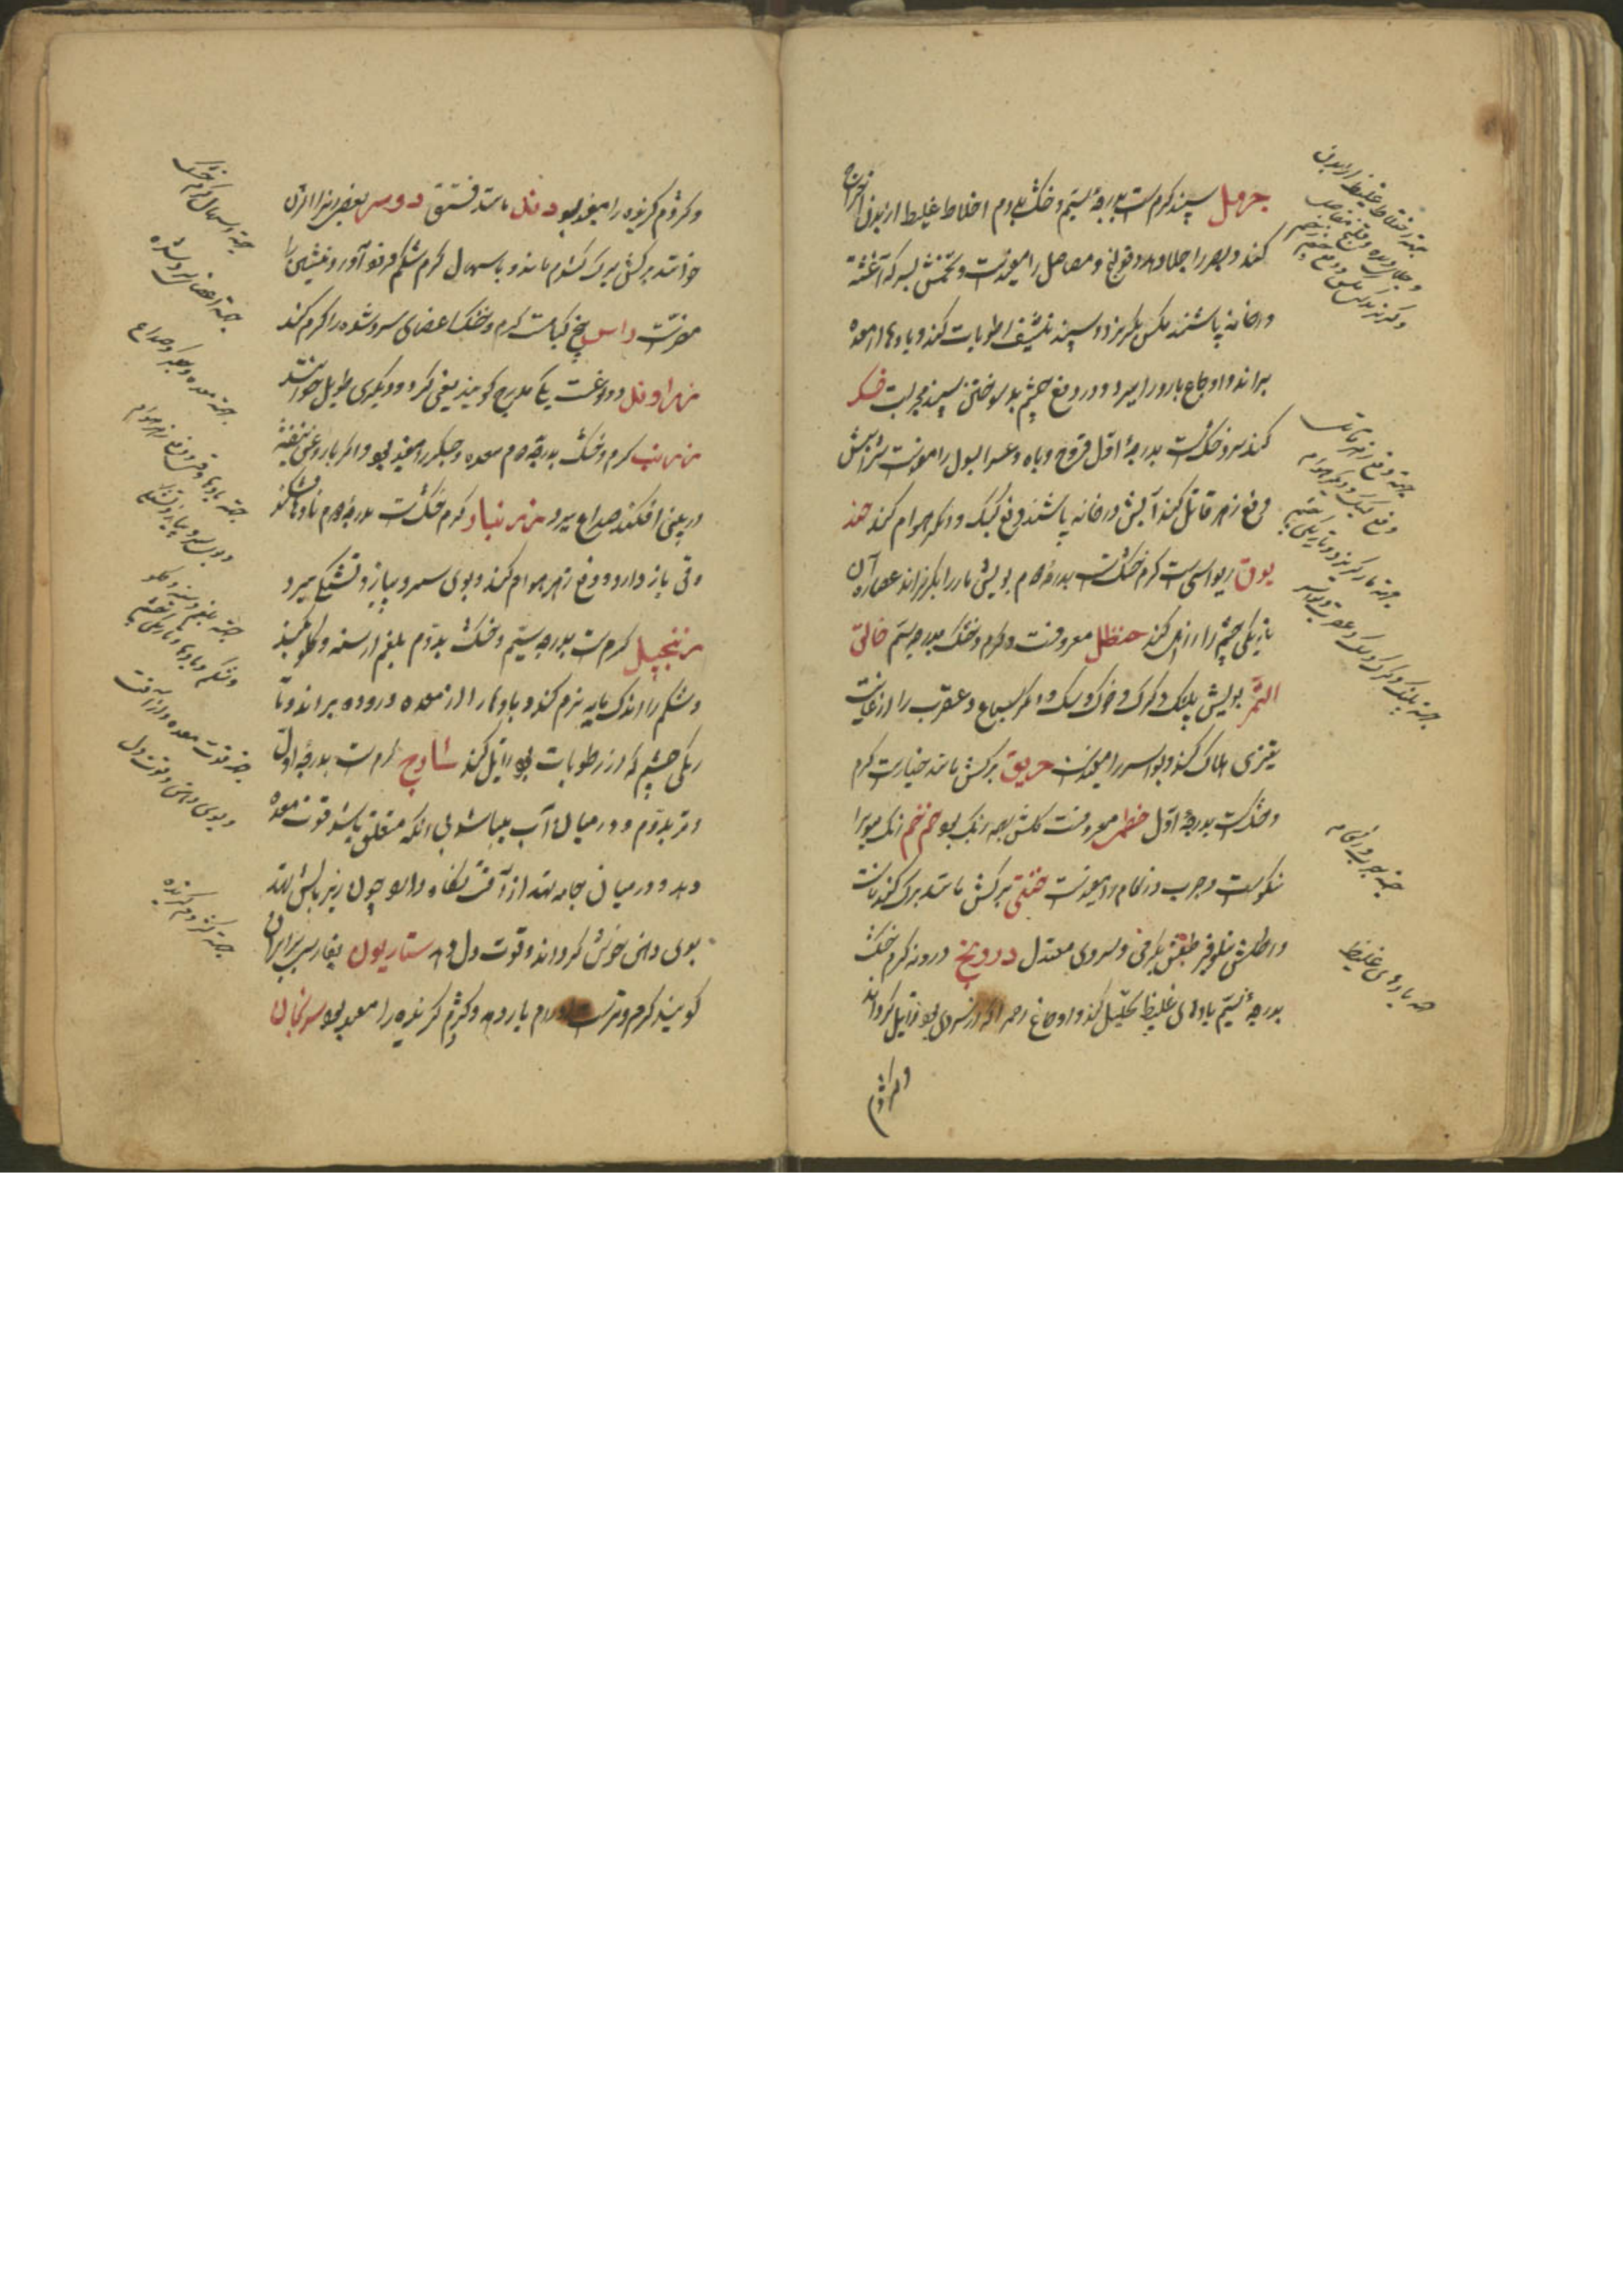 حرمل سپند کرمست بدرجهٔ سیّم و خشک بدوم اخلاط غلیظ از بدن اخراج
کند و بصر را جلا دهد و قولنج و مفاصل را مفیدست و تخمش بسرکه آغشته
در خانه پاشند مکس بکریزد و اسپند تنشیف رطوبات کند و بادها از معده
براند و اوجاع بارد را ببرد و در دفع چشم بد سوختن سپند مجربست خسک
کند سرد و خشکست بدرجهٔ اوّل قروح و باه و عسر البول را مفیدست شرابش
دفع زهر قاتل کند آبش در خانه پاشند دفع کیک و دیکر هوام کند حند
قوق دیو اسپست کرم خشکست بدرجهٔ دوم بویش مار را بکریزاند عصارهٔ آن
تاریکی چشم را زایل کند حنظل معروفست و کرم و خشک بدرجه سیّم خانق
النمر بویش پلنک و کرک و خوک و سک و اکثر سباع و عقرب را از غایت
تیزی هلاک کند و بواسیر را مفیدست خربق برکش مانند خیارست کرم
و خشکست بدرجهٔ اوّل خطمی معروفست کلش بهمه رنک بود خم خم انک میویرا
نیکوست و جرب و زکام را مفیدست خنثی برکش مانند برک کندناست
درونج درونه کرم خشک
بدرجهٔ سیّم بادهای غلیظ تحلیل کند و اوجاع رحم را که از سردی بود زایل کرداند
و کژدم
جهة اخلاط غلیظ از بدن
جهة دفع زهر قاتل
و دفع کیک و دیکر هوام
جهة مار کریزد و تاریکی چشم
جهة پلنک و کرک و سک و عقرب و بواسیر
جهة جرب و زکام
جهة بادهای غلیظ
و کژدم کزیده را مفید بود دند مانند فستق دوسر بعضی انرا ازن
خوانند برکش ببرک کندم ماند و باسهال کرم شکم فرود آورد
مضرتست راسن بیخ کیاست کرم و خشک اعضای سرد شده را کرم کند
زراوند دو نوعست یکی مدحرج کویند یعنی کرد و دیکری طویل خوانند
زرنب کرم و خشک بدرجهٔ دوم معده و جکر را مفید بود و اکر با روغن بنفشه
در بینی افکنند صداع ببرد زرنباد کرم خشکست بدرجهٔ دوم بادها بشکند
و قی باز دارد و دفع زهر هوام کند و بوی سیر و پیاز و تشنکی ببرد
زنجبیل کرمست بدرجهٔ سیّم و خشک بدوّم بلغم از سینه و کلو بکند
و شکم را اندک مایه نرم کند و بادها را از معده و روده براند و تا
ریکی چشم که از رطوبات بود زایل کند ساذج کرمست بدرجهٔ اوّل
و تر بدوّم و در میان آب پیدا شود بی انکه متعلق باشد قوت معده
دهد و در میان جامه نهند از آفت نکاه دارد و چون زیر زبان نهند
بوی دهن خوش کرداند و قوت دل دهد ستاریون بفارسی
کویند کرم و ترست اورام بارده و کژدم کزیده را مفید بود سرنجان
جهة اسهال کرم خشک
جهة اعضای سرد شده
جهة معده و جکر و صداع
جهة بادها و قی و دفع زهر هوام
و بوی سیر و پیاز و تشنکی
جهة بلغم و سینه و کلو
و شکم و بادها و تاریکی چشم
جهة قوت معده و از آفت
و بوی دهن و قوت دل
جهة کژدم کزیده